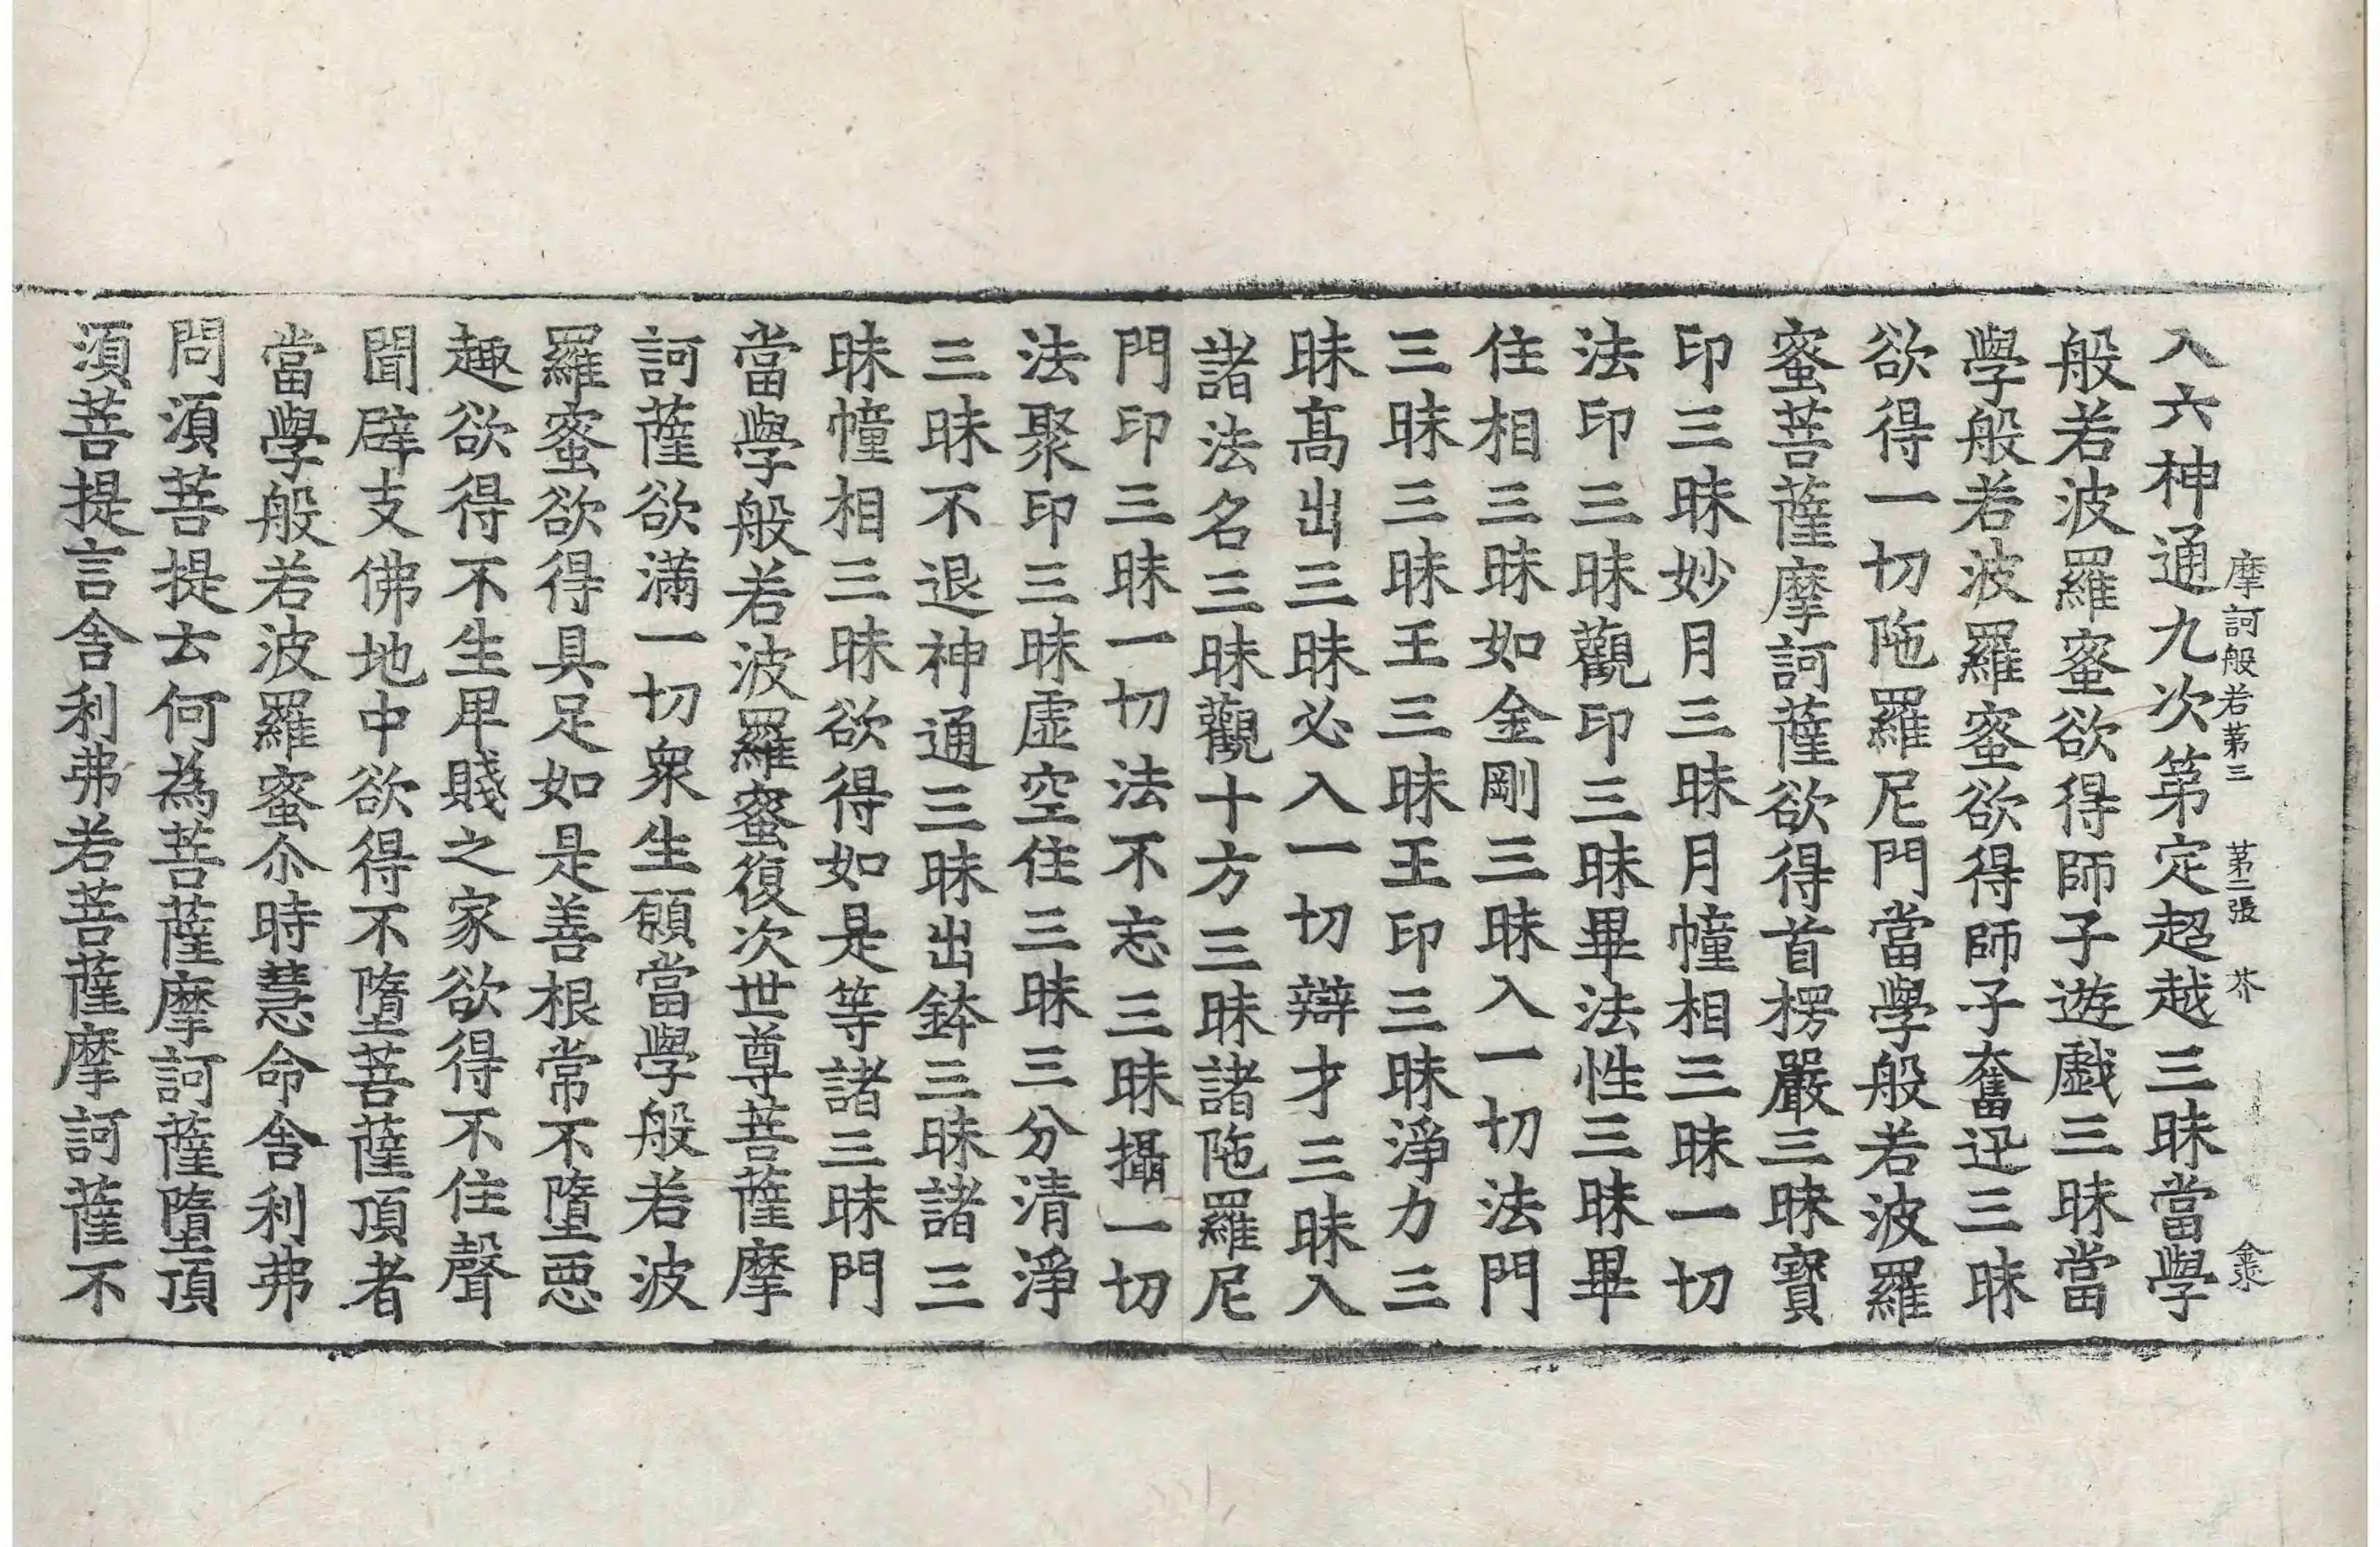 摩訶般若第三 第二張 芥
入六神通九次第定超越三昧當學
般若波羅蜜欲得師子遊戲三昧當
學般若波羅蜜欲得師子奮迅三昧
欲得一切陁羅尼門當學般若波羅
蜜菩薩摩訶薩欲得首楞嚴三昧寶
印三昧妙月三昧月幢相三昧一切
法印三昧觀印三昧畢法性三昧畢
住相三昧如金剛三昧入一切法門
三昧三昧王三昧王印三昧淨力三
昧髙出三昧必入一切辯才三昧入
諸法名三昧觀十方三昧諸陁羅尼
門印三昧一切法不忘三昧攝一切
法聚印三昧虛空住三昧三分清淨
三昧不退神通三昧出鉢三昧諸三
昧幢相三昧欲得如是等諸三昧門
當學般若波羅蜜復次世尊菩薩摩
訶薩欲滿一切衆生願當學般若波
羅蜜欲得具足如是善根常不墮惡
趣欲得不生卑賤之家欲得不住聲
聞辟支佛地中欲得不墮菩薩頂者
當學般若波羅蜜尒時慧命舍利弗
問須菩提云何為菩薩摩訶薩墮頂
須菩提言舍利弗若菩薩摩訶薩不